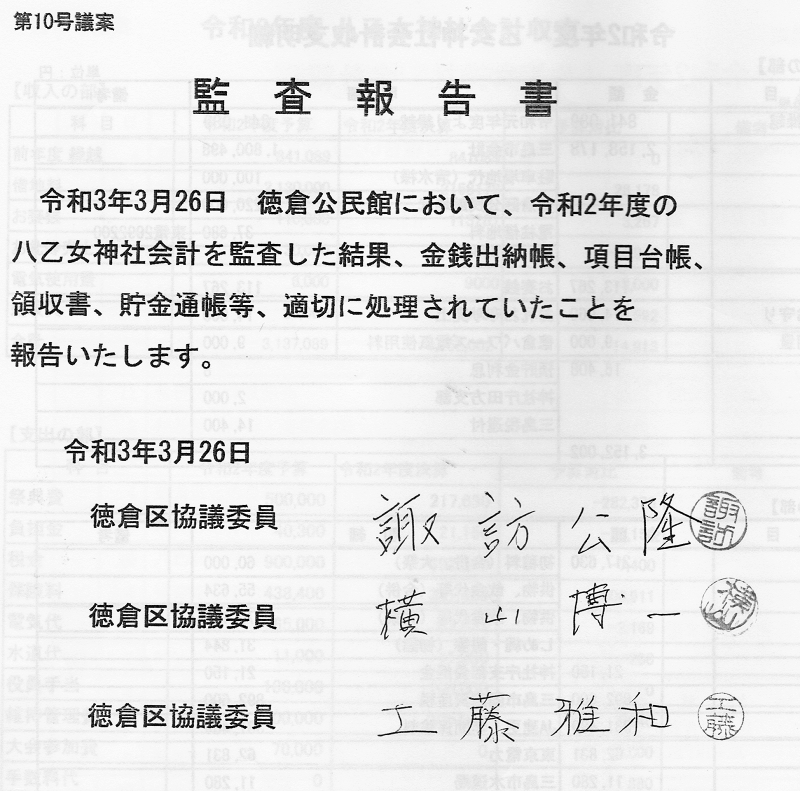 第10号議案
監査報告書
令和3年3月26日　徳倉公民館において、令和2年度の
八乙女神社会計を監査した結果、金銭出納帳、項目台帳、
領収書、貯金通帳等、適切に処理されていたことを
報告いたします。
令和3年3月26日
徳倉区協議委員　諏訪公隆　諏訪
徳倉区協議委員　横山博一　横山
徳倉区協議委員　工藤雅和　工藤